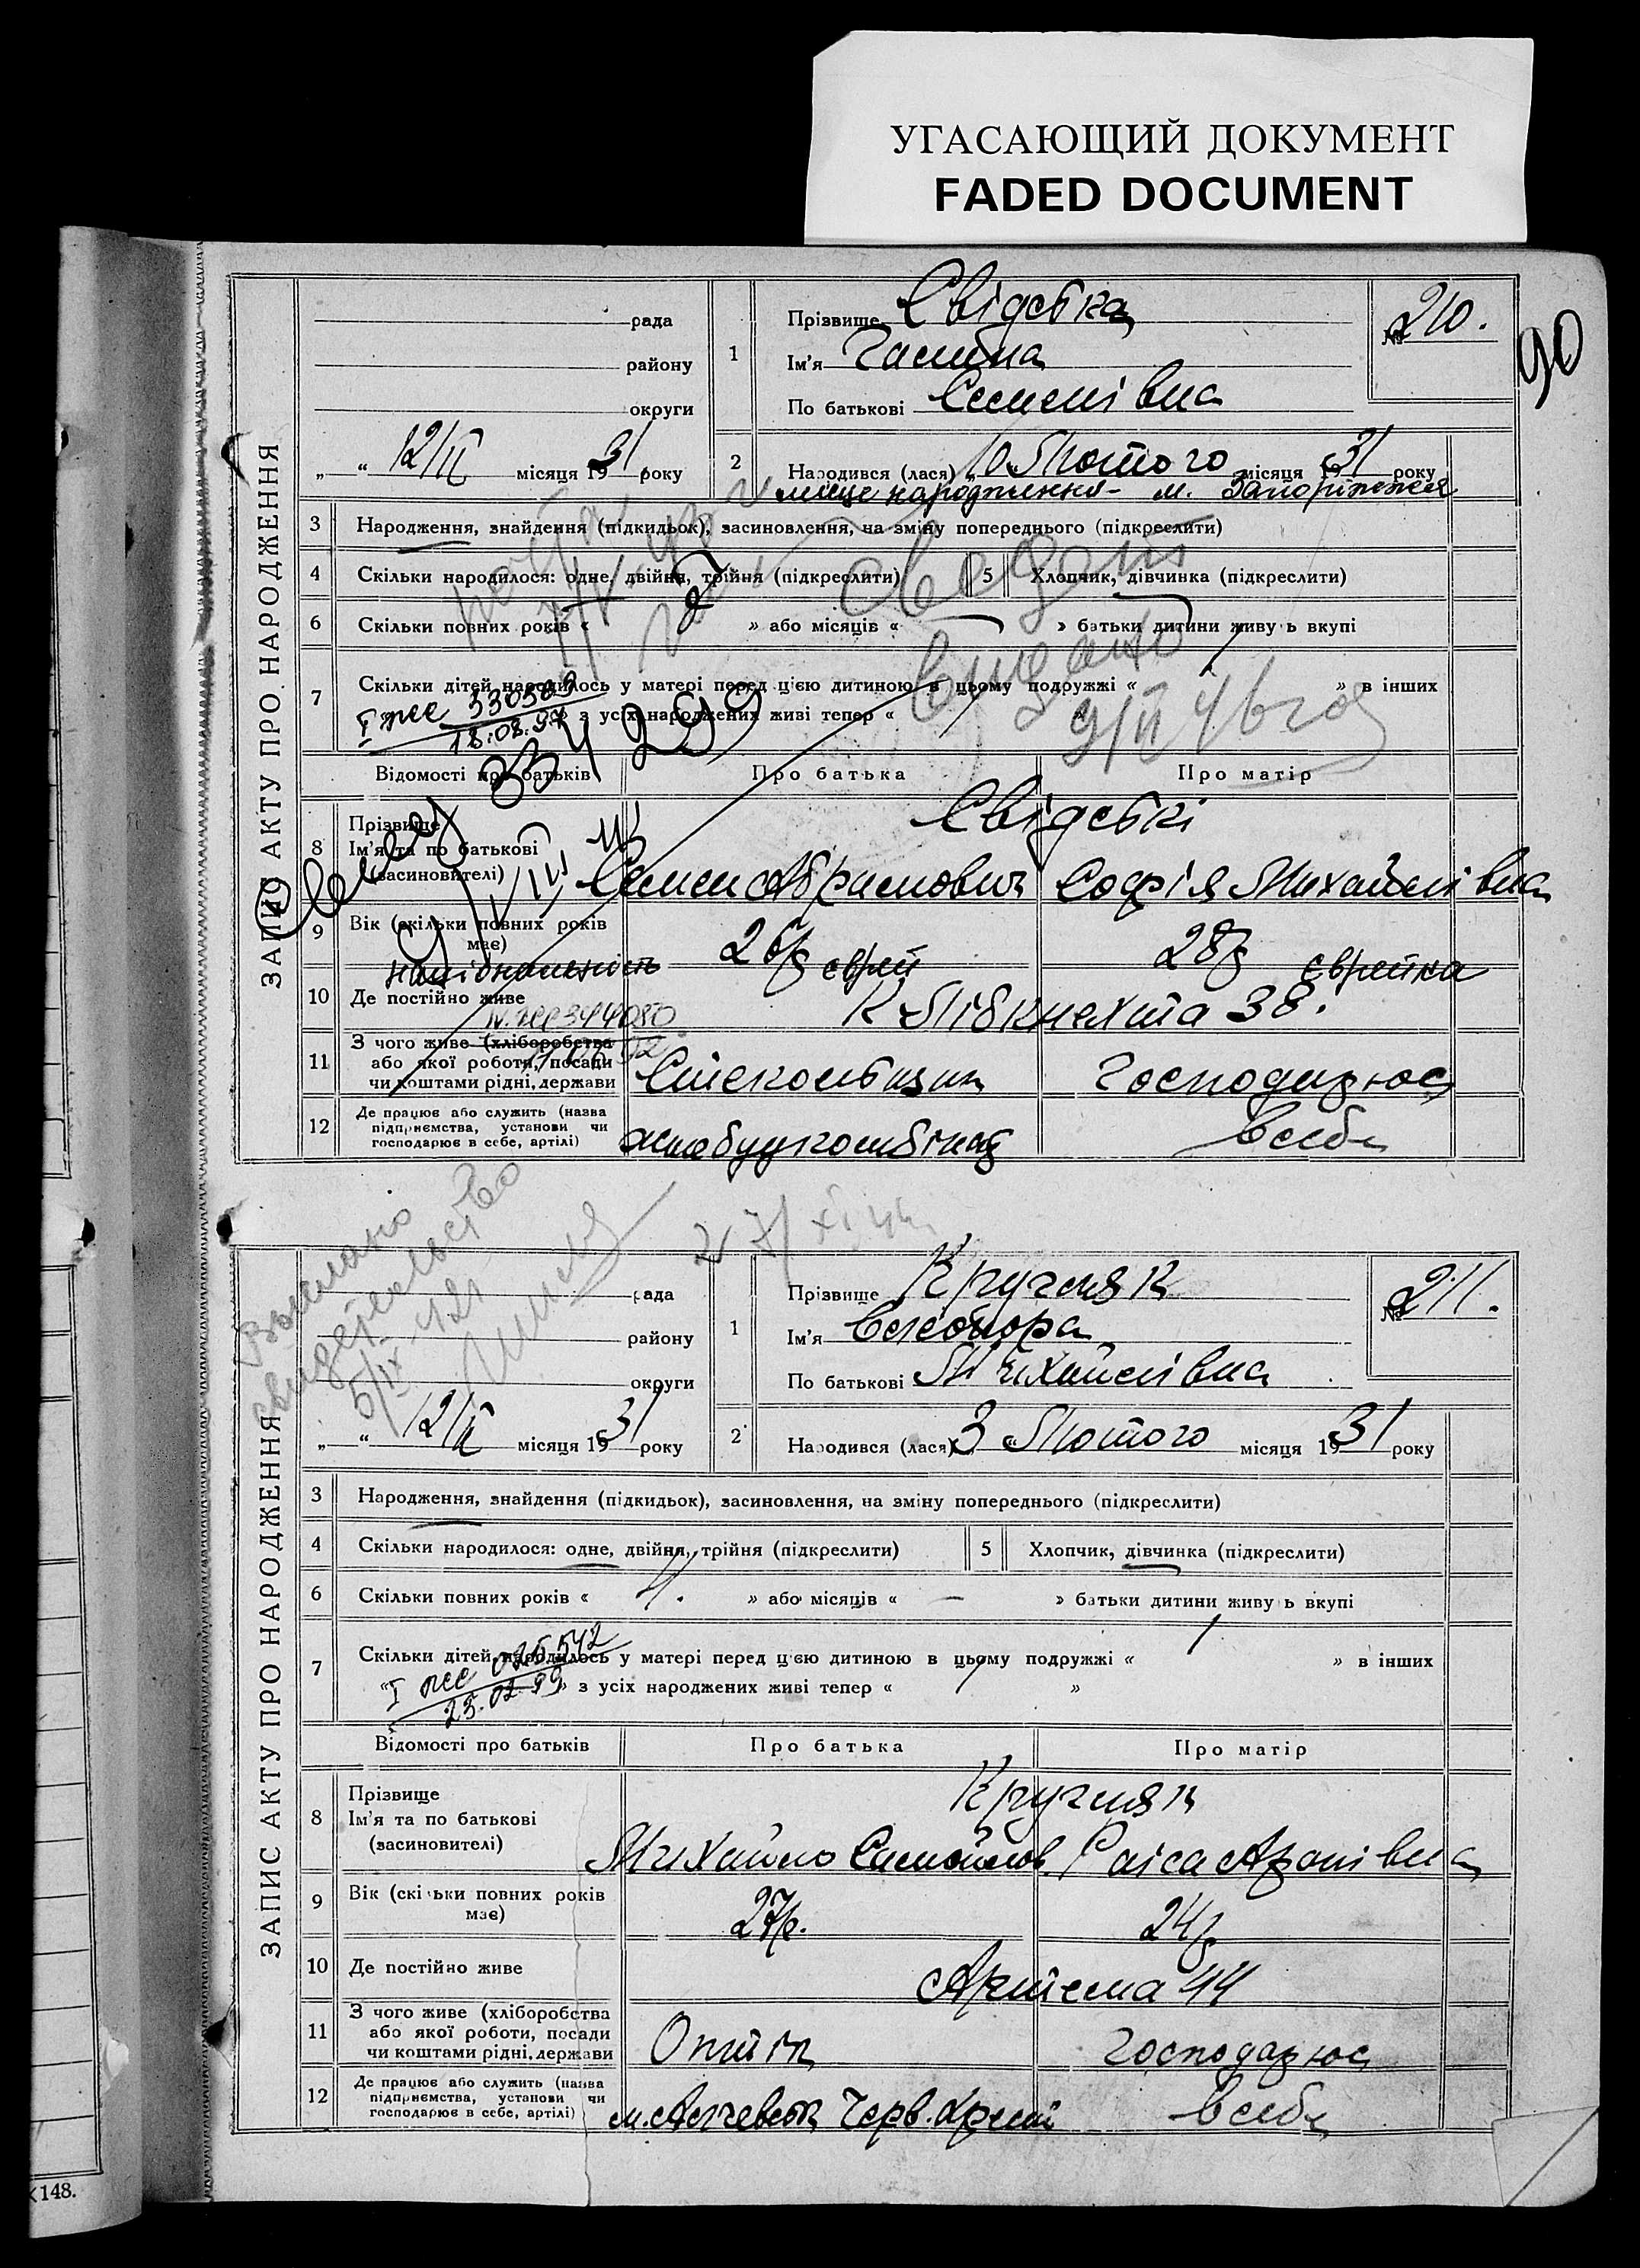 УГАСАЮЩИЙ ДОКУМЕНТ
FADED DOCUMENT
90
ЗАПИС АКТУ ПРО НАРОДЖЕННЯ
рада
району
округи
„ “ 12/II місяця 1931 року
1 Прізвище Свідська
Ім'я Галина
По батькові Семенівна
№ 210.
2 Народився (лася) „10 Лютого місяця 1931 року
місце народження - м. Запоріжжя
3 Народження, знайдення (підкидьок), засиновлення, на зміну попереднього (підкреслити)
4 Скільки народилося: одне, двійня, трійня (підкреслити)
5 Хлопчик, дівчинка (підкреслити)
6 Скільки повних років « » або місяців « — » батьки дитини живуь вкупі
7 Скільки дітей народилось у матері перед цією дитиною в цьому подружжі « » в інших
» з усіх народжених живі тепер «
I жс 330589
18.08.97
334299
видано
9/II 46
Відомості про батьків
Про батька
Про матір
8 Прізвище
Ім'я та по батькові
(засиновителі)
Свідські
Семен Абрамович
Софія Михайлівна
9 Вік (скільки повних років має)
26р
28р
національность
єврей
єврейка
10 Де постійно живе
К Лібкнехта 38.
344080
11 З чого живе (хліборобства
або якої роботи, посади
чи коштами рідні, держави
Стекольщик
Господарює
12 Де працює або служить (назва
підприємства, установи чи
господарює в себе, артілі)
в себе
Свидетельство
5/IX 42
27/XI
ЗАПИС АКТУ ПРО НАРОДЖЕННЯ
рада
району
округи
„ “ 12/II місяця 1931 року
1 Прізвище Кругляк
Ім'я Елеонора
По батькові Михайлівна
№ 211.
2 Народився (лася) 3 „ Лютого місяця 1931 року
3 Народження, знайдення (підкидьок), засиновлення, на зміну попереднього (підкреслити)
4 Скільки народилося: одне, двійня, трійня (підкреслити)
5 Хлопчик, дівчинка (підкреслити)
6 Скільки повних років « 4. » або місяців « — » батьки дитини живуь вкупі
7 Скільки дітей народилось у матері перед цією дитиною в цьому подружжі « 1 » в інших
« » з усіх народжених живі тепер « 1 »
I жс 025542
25.02.99
Відомості про батьків
Про батька
Про матір
8 Прізвище
Ім'я та по батькові
(засиновителі)
Кругляк
Михайло Самойлов.
Раїса Аронівна
9 Вік (скільки повних років має)
27р.
24р
10 Де постійно живе
Артема 44
11 З чого живе (хліборобства
або якої роботи, посади
чи коштами рідні, держави
Оптік
господарює
12 Де працює або служить (назва
підприємства, установи чи
господарює в себе, артілі)
Черв.
в себе
148.